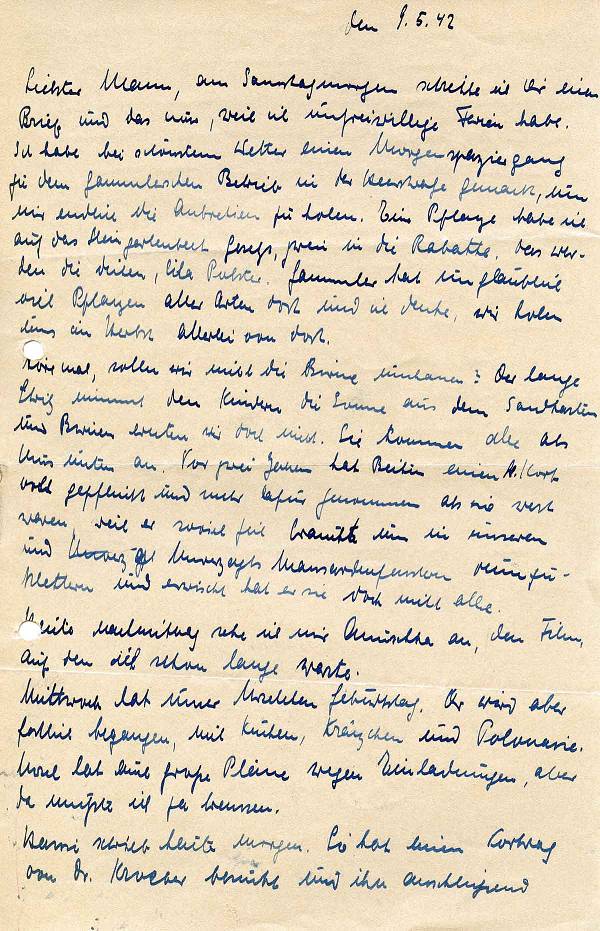 den 9.5.42
Liebster Mann, am Samstagmorgen schreibe ich Dir einen
Brief und das nur, weil ich unfreiwillige Ferien habe.
Ich habe bei schönstem Wetter einen Morgenspaziergang
zu dem Sammlerschen Betrieb in der Heerstraße gemacht, um
mir endlich die Aubretien zu holen. Eine Pflanze habe ich
auf das Steingartenbeet gesetzt, zwei in die Rabatte. Das wer-
den die dritten, lila Polster. Sammler hat unglaublich
viel Pflanzen aller Arten dort und ich denke, wir holen
uns im Herbst allerlei von dort.
Hör mal, sollen wir nicht die Birne umhauen? Der lange
Stritz nimmt den Kindern die Sonne aus dem Sandkasten
und Birnen ernten wir doch nicht. Sie kommen alle als
Mus unten an. Vor zwei Jahren hat Beitin einen Korb
voll gepflückt und mehr dafür genommen als sie wert
waren, weil er soviel Zeit brauchte um in unseren
und Unverzagts Mansardenfenstern rumzu-
klettern und erwischt hat er sie doch nicht alle.
Heute nachmittag sehe ich mir Anuschka an, den Film,
auf den ich schon lange warte.
Mittwoch hat unser Geburtstag. Der wird aber
festlich begangen, mit Kuchen, Kränzchen und Polonaise.
hat eine große Pläne wegen Einladungen, aber
da mußte ich ja bremsen.
schrieb heute morgen. Sie hat einen Vortrag
von Dr. besucht und ihn anschließend